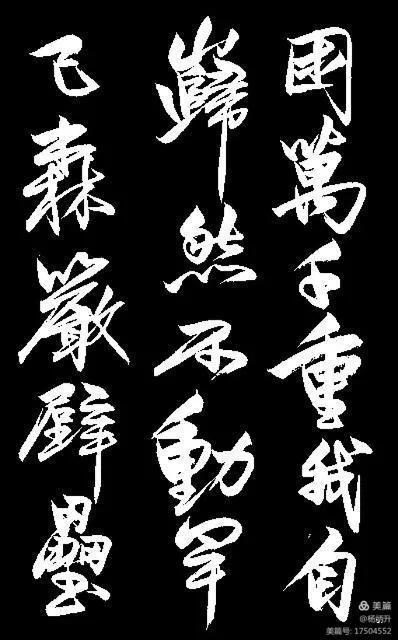 困萬千重我自
巋然不動早
已森嚴壁壘
美篇
美篇号: 17504552